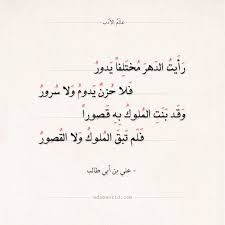 عالم الأدب
رَأَيتُ الدَهرَ مُختَلِفاً يَدورُ
فَلا حُزنٌ يَدومُ وَلا سُرورُ
وَقَد بَنَتِ المُلوكُ بِهِ قُصوراً
فَلَم تَبقَ المُلوكُ وَلا القُصورُ
- علي بن أبي طالب -
adabworld.com